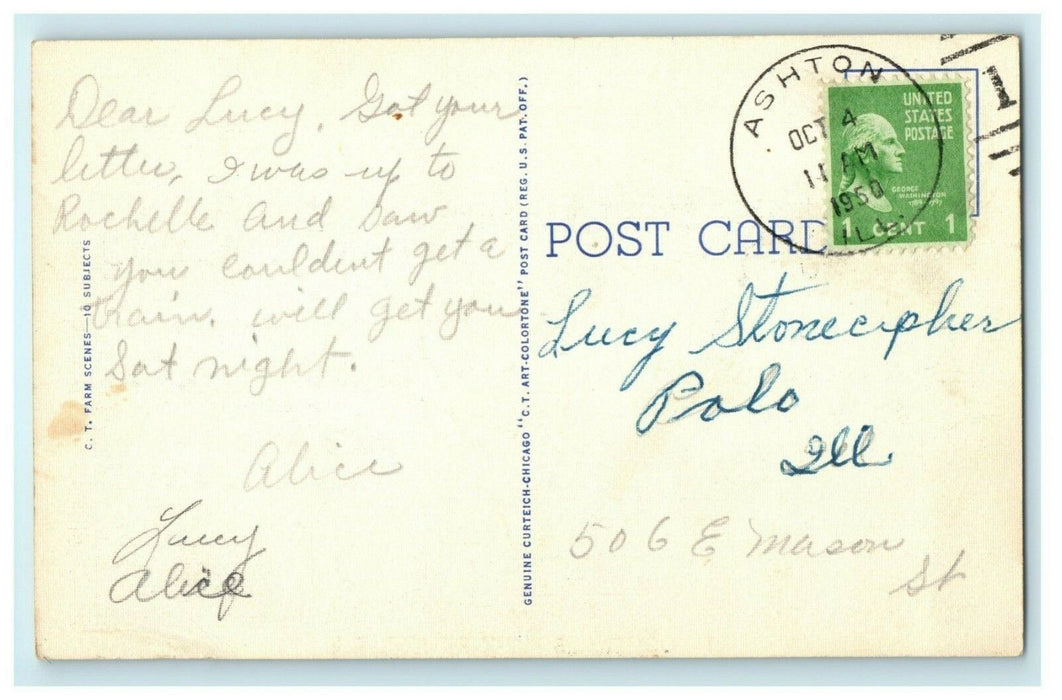 Dear Lucy, Got your
letter, I was up to
Rochelle and saw
you couldent get a
train. will get you
Sat night.
Alice
Lucy
Alice
C. T. FARM SCENES—10 SUBJECTS
GENUINE CURTEICH-CHICAGO "C.T. ART-COLORTONE" POST CARD (REG. U.S. PAT. OFF.)
POST CARD
ASHTON
OCT 4
11 AM
1950
ILL.
1
UNITED
STATES
POSTAGE
GEORGE
WASHINGTON
1789-1797
1 CENT 1
Lucy Stonecipher
Polo
Ill
506 E Mason
St